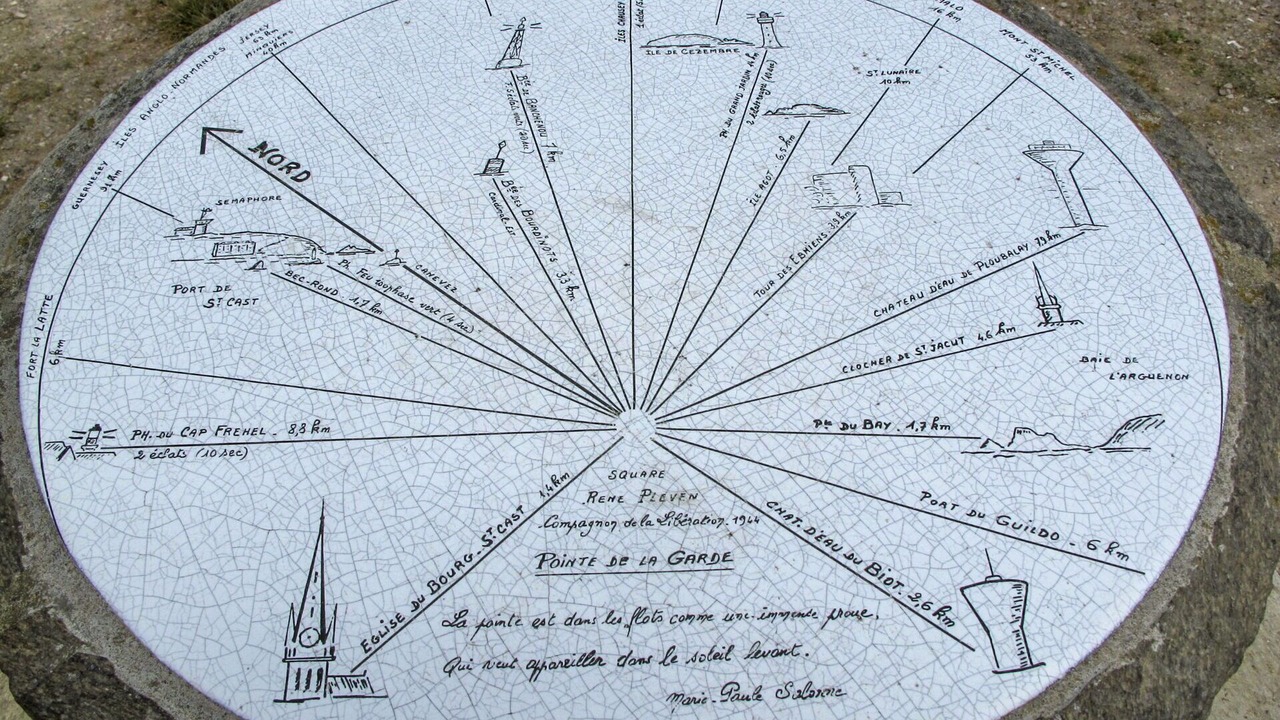 JERSEY
63 km
MINQUIERS
40 km
ILES ANGLO-NORMANDES
GUERNESEY
NORD
SEMAPHORE
PORT DE
ST CAST
BEC-ROND . 1,7 km
CANEVEZ
FORT LA LATTE
6 km
PH. DU CAP FREHEL . 8,8 km
2 éclats (10 sec)
BSE DE BANCHENOU 7 km
BSE DES BOURDINOTS 3,3 km
cardinal Est
ILES CHAUSEY
ILE DE CEZEMBRE
PH DU GRAND JARDIN
ILE AGOT . 6,5 km
ST LUNAIRE
10 km
16 km
MONT ST MICHEL
53 km
TOUR DES EBHIENS
CHATEAU D'EAU DE PLOUBALAY
CLOCHER DE ST JACUT 4,6 km
BAIE DE
L'ARGUENON
PTE DU BAY . 1,7 km
PORT DU GUILDO - 6 km
CHAT. D'EAU DU BIOT . 2,6 km
EGLISE DU BOURG - ST CAST 1,4 km
SQUARE
RENE PLEVEN
Compagnon de la Libération . 1944
POINTE DE LA GARDE
La pointe est dans les flots comme une immense proue,
Qui veut appareiller dans le soleil levant.
Marie-Paule Salonne